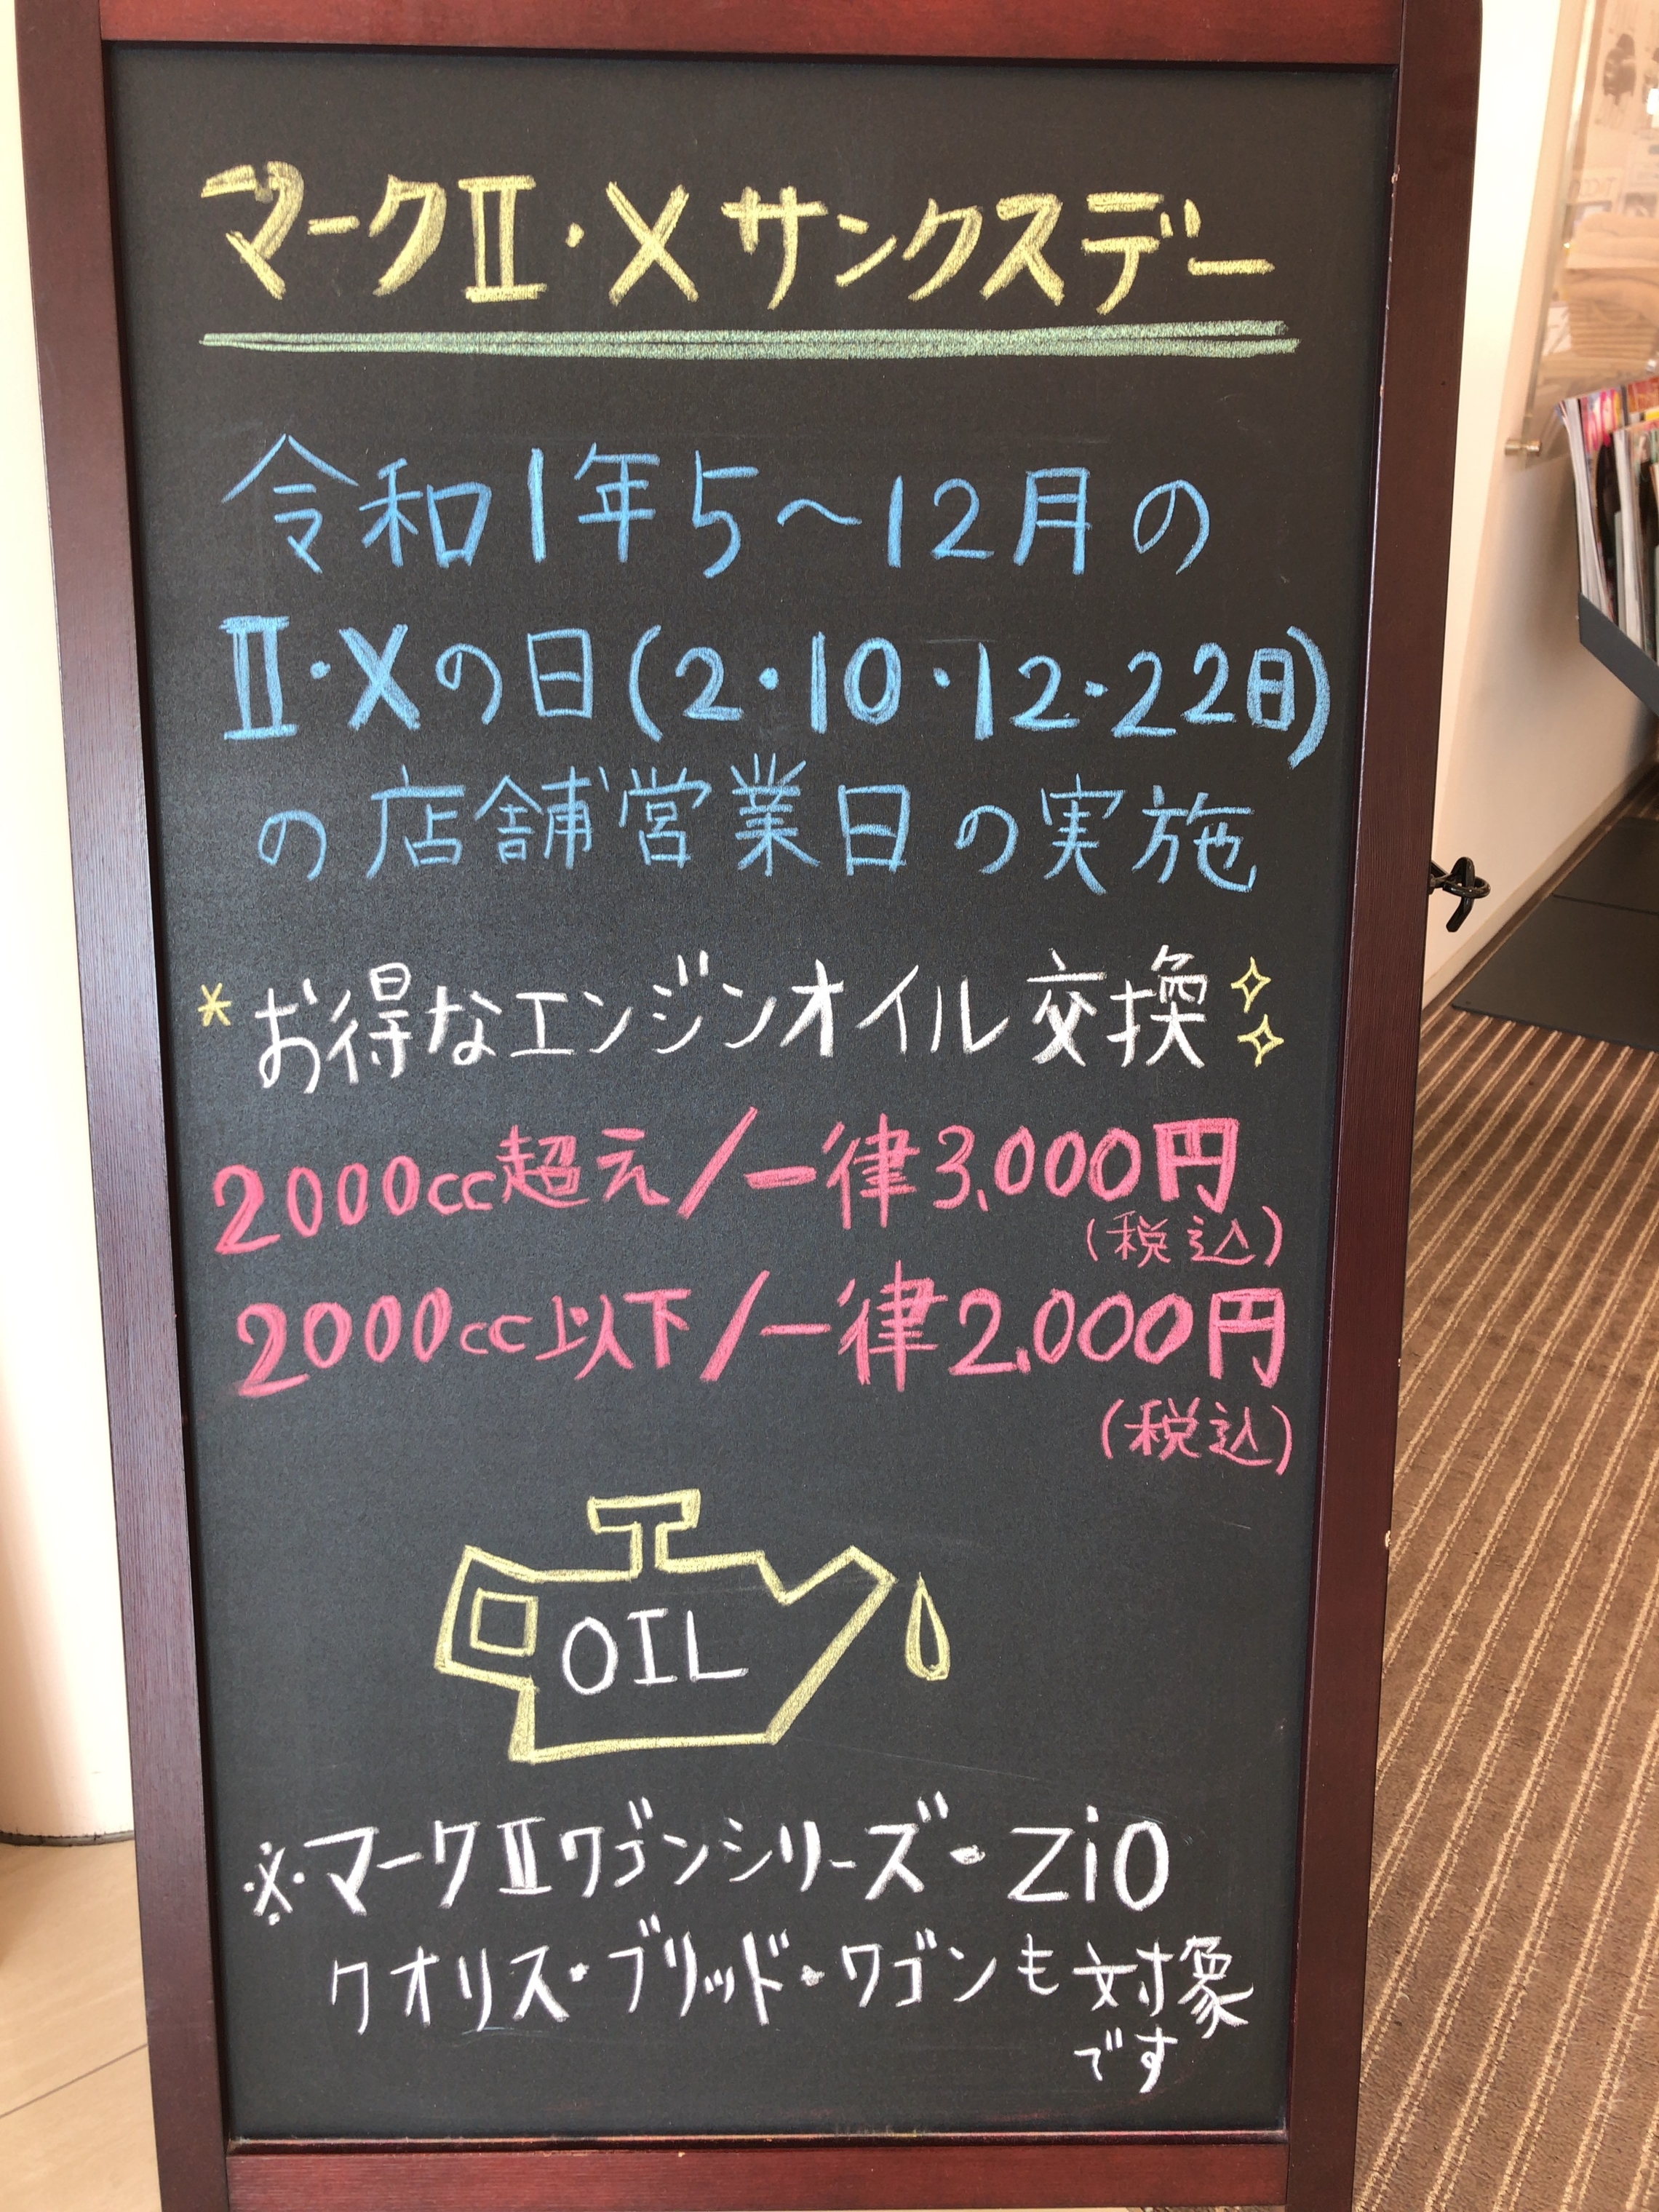 マークⅡ・Xサンクスデー
令和1年5～12月の
Ⅱ・Xの日(2・10・12・22日)
の店舗営業日の実施
*お得なエンジンオイル交換
2000cc超え/一律3,000円
(税込)
2000cc以下/一律2,000円
(税込)
OIL
※マークⅡワゴンシリーズ・Zio
クオリス・ブリッド・ワゴンも対象
です